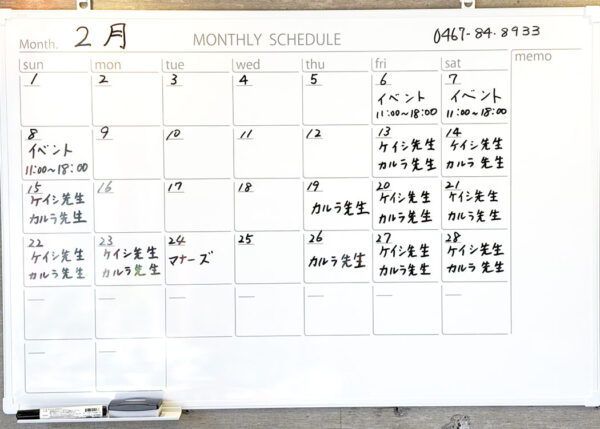 Month. 2月 MONTHLY SCHEDULE 0467-84-8933
sun mon tue wed thu fri sat memo
1 2 3 4 5 6 7
イベント イベント
11:00~18:00 11:00~18:00
8 9 10 11 12 13 14
イベント ケイシ先生 ケイシ先生
11:00~18:00 カルラ先生 カルラ先生
15 16 17 18 19 20 21
ケイシ先生 ケイシ先生 ケイシ先生
カルラ先生 カルラ先生 カルラ先生 カルラ先生
22 23 24 25 26 27 28
ケイシ先生 ケイシ先生 マナーズ ケイシ先生 ケイシ先生
カルラ先生 カルラ先生 カルラ先生 カルラ先生 カルラ先生